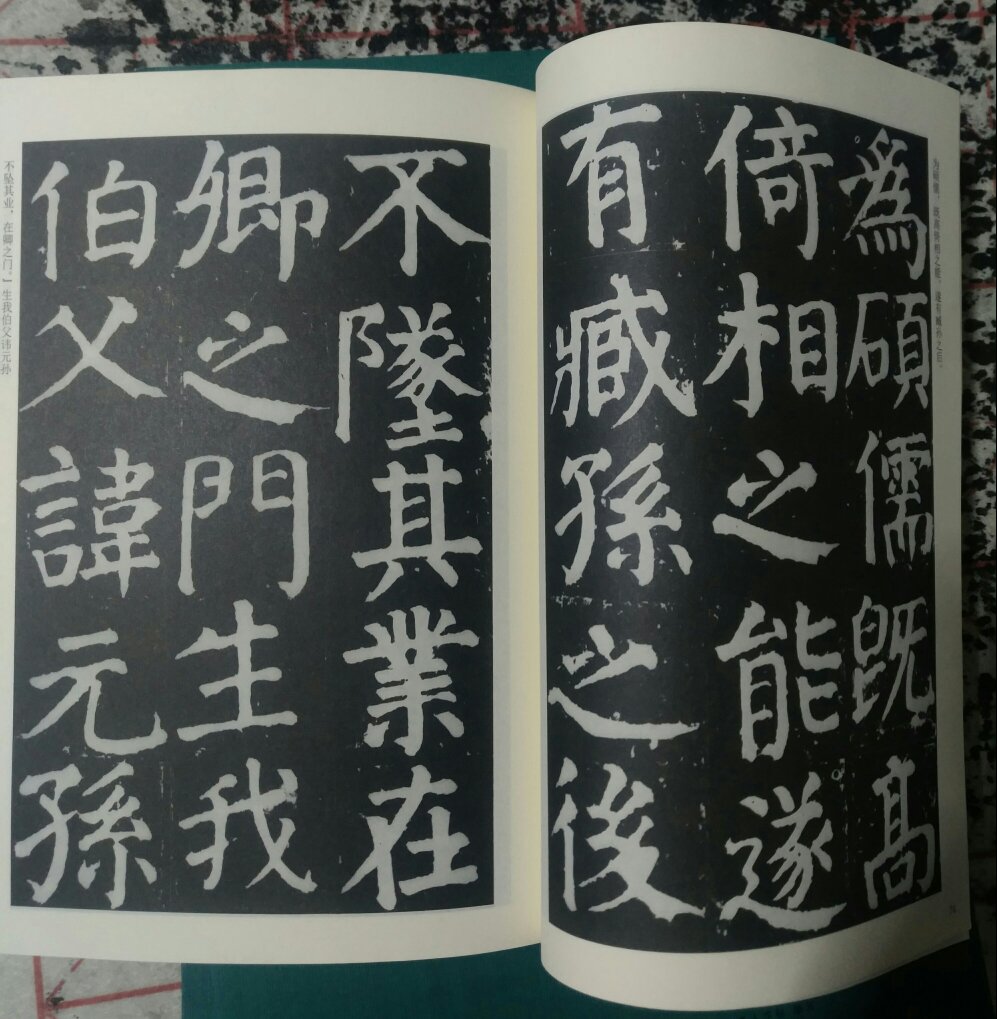 為碩儒既高
倚相之能遂
有臧孫之後
为硕儒。既高倚相之能，遂有臧孙之后。
不墜其業在
卿之門生我
伯父諱元孫
不坠其业，在卿之门。】生我伯父讳元孙